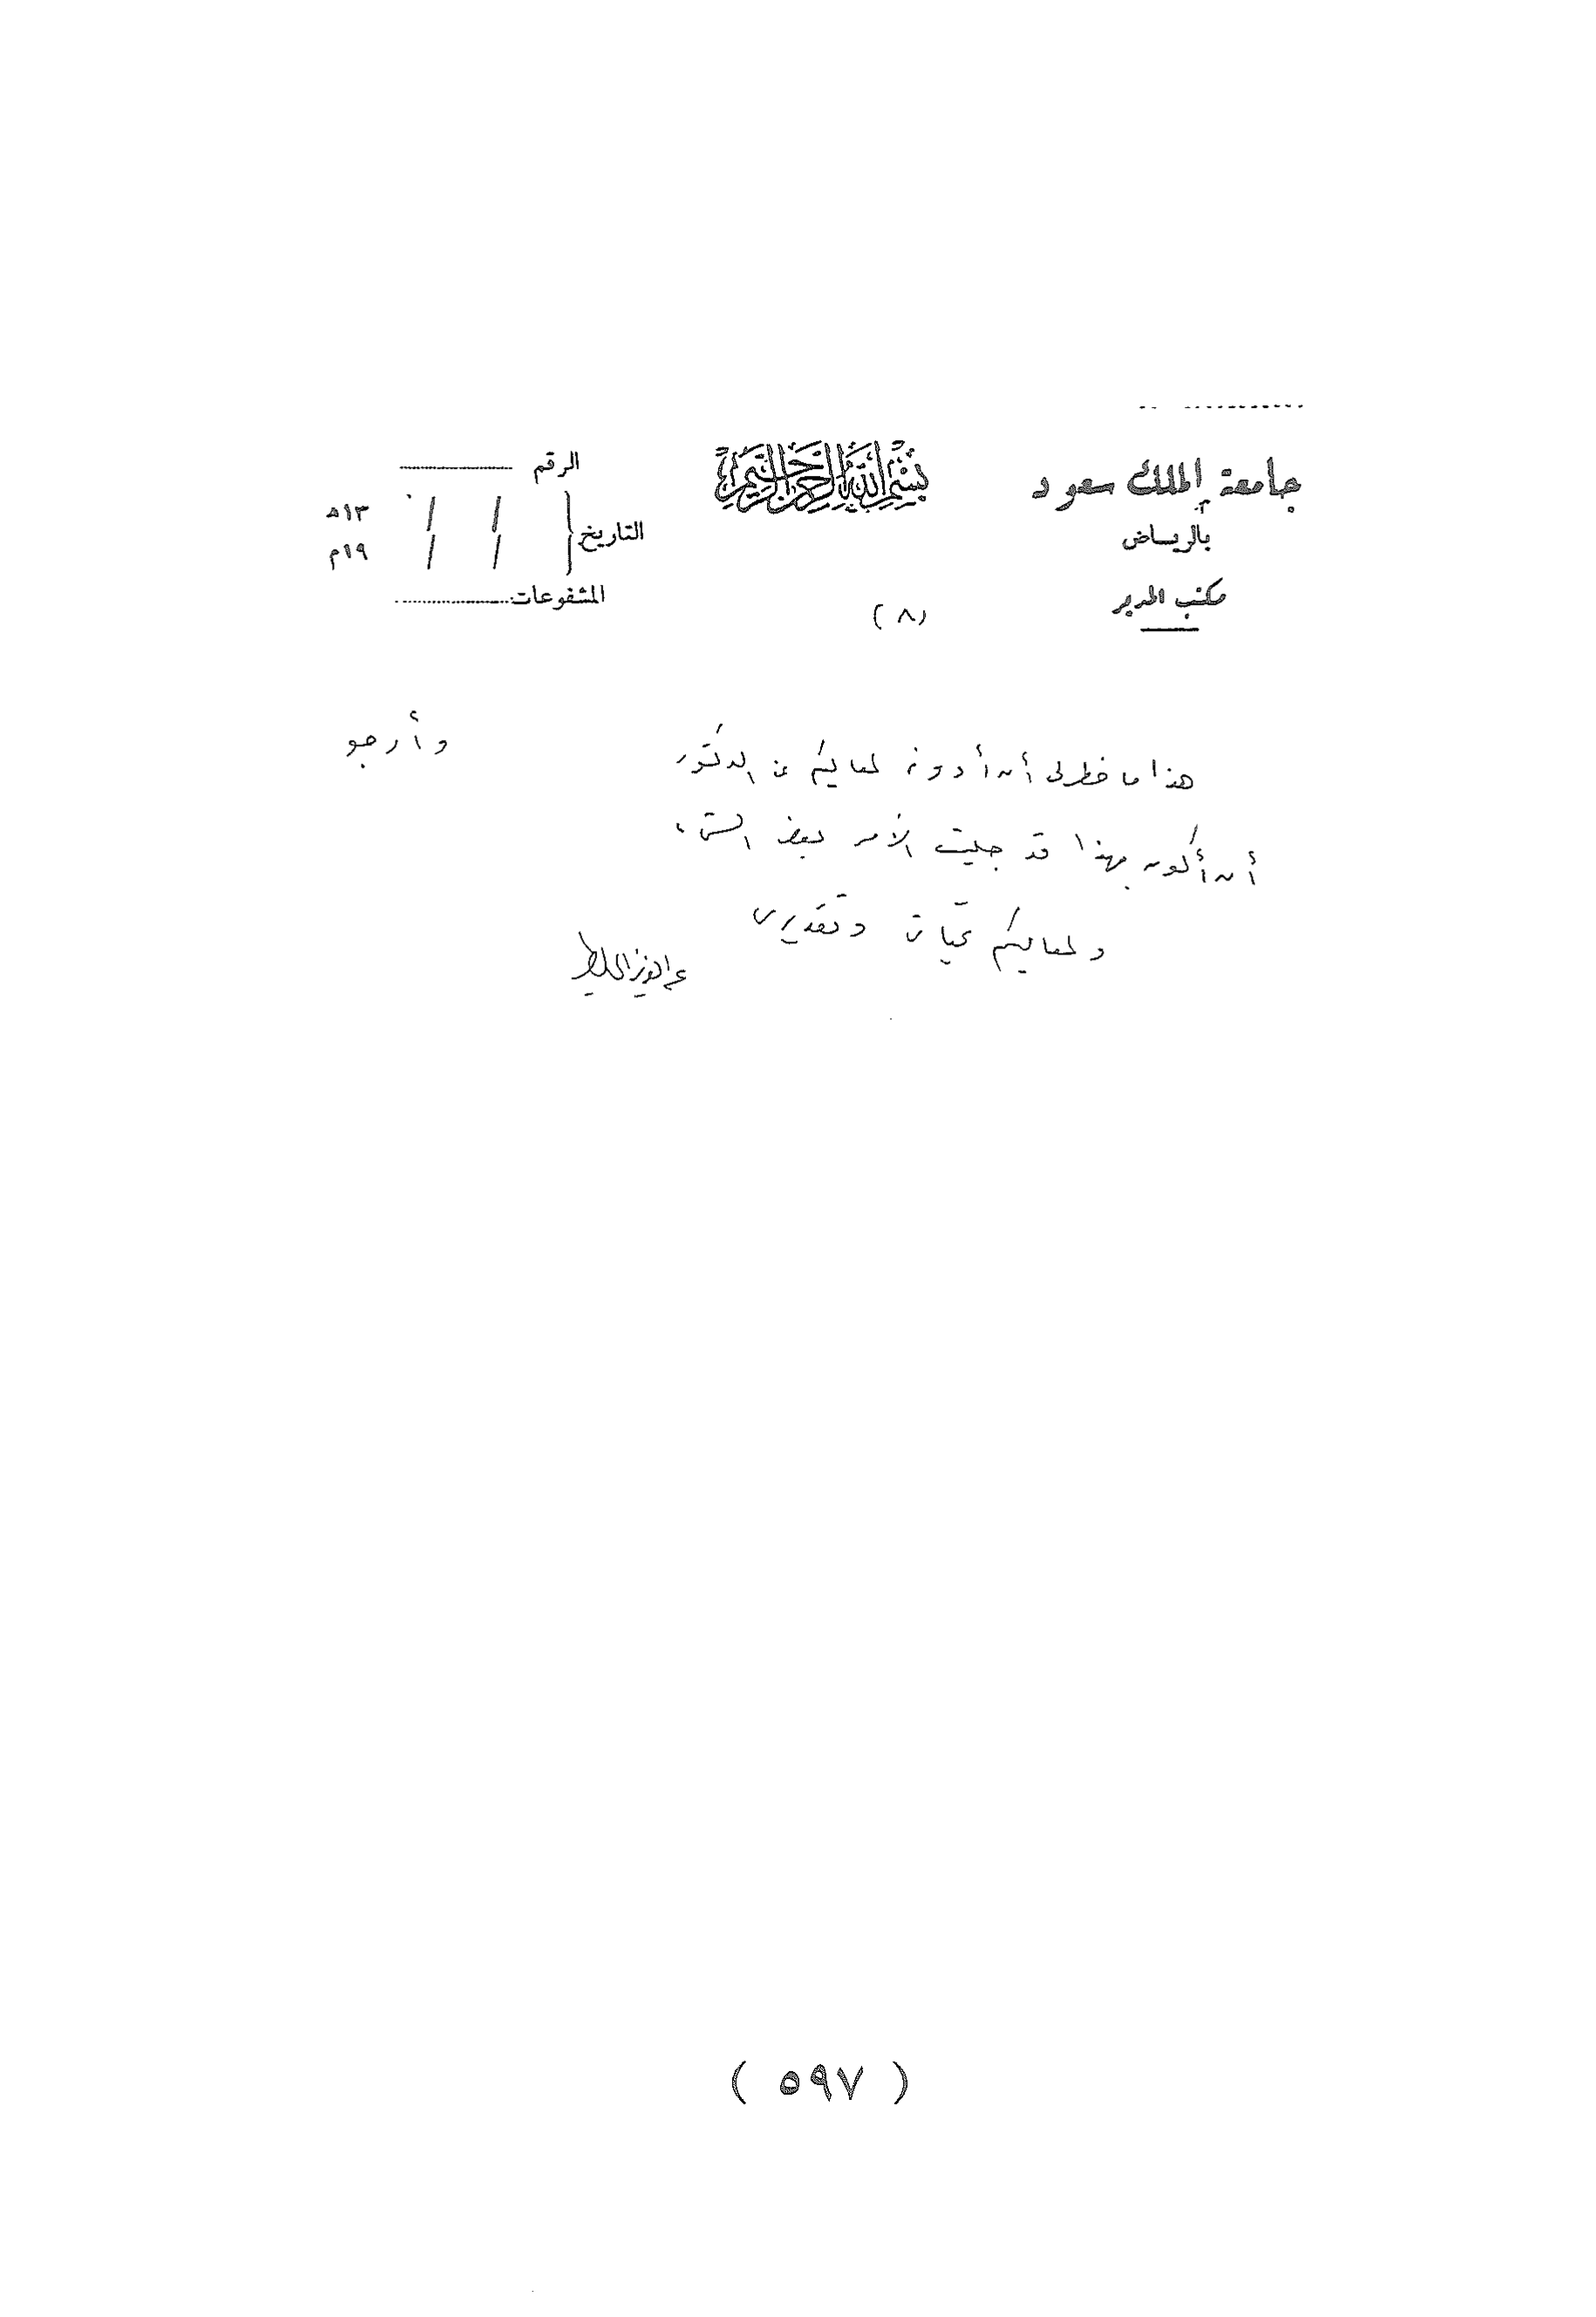 جامعة الملك سعود
بالرياض
مكتب المدير
بسم الله الرحمن الرحيم
الرقم
التاريخ / / ١٣هـ
/ / ١٩م
المشفوعات
(٨)
هذا ما خطر لي أن أدونه لمعاليكم عن الدكتور وأرجو
أن أكون بهذا قد جليت الأمر بعض الشيء
ولمعاليكم تحياتي وتقديري
عبد العزيز الخويطر
( ٥٩٧ )